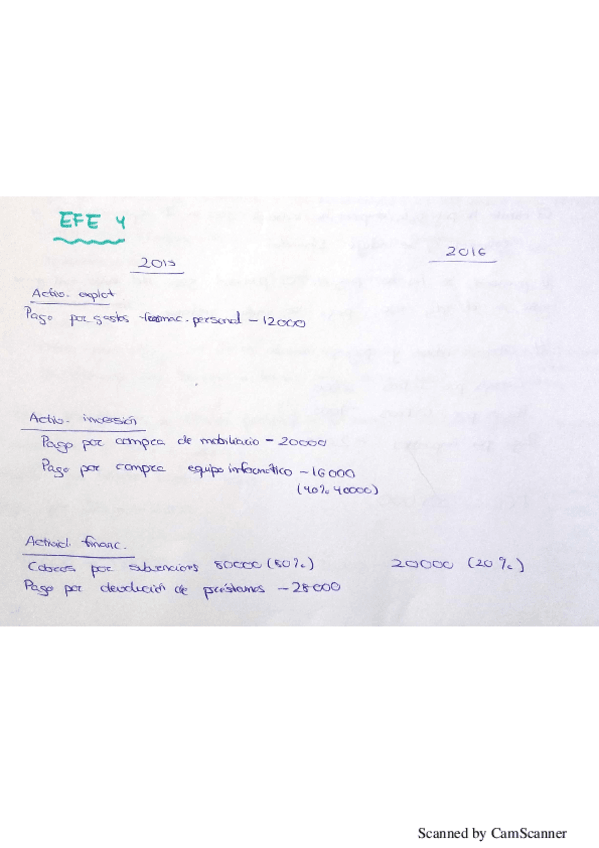 EFE 4
2015
2016
Activ. explot
Pago por gastos formac. personal - 12000
Activ. inversión
Pago por compra de mobiliario - 20000
Pago por compra equipo informático - 16000
(40% 40000)
Activid. financ.
Cobros por subvencions 80000 (80%) 20000 (20%)
Pago por devolución de préstamos - 28000
Scanned by CamScanner